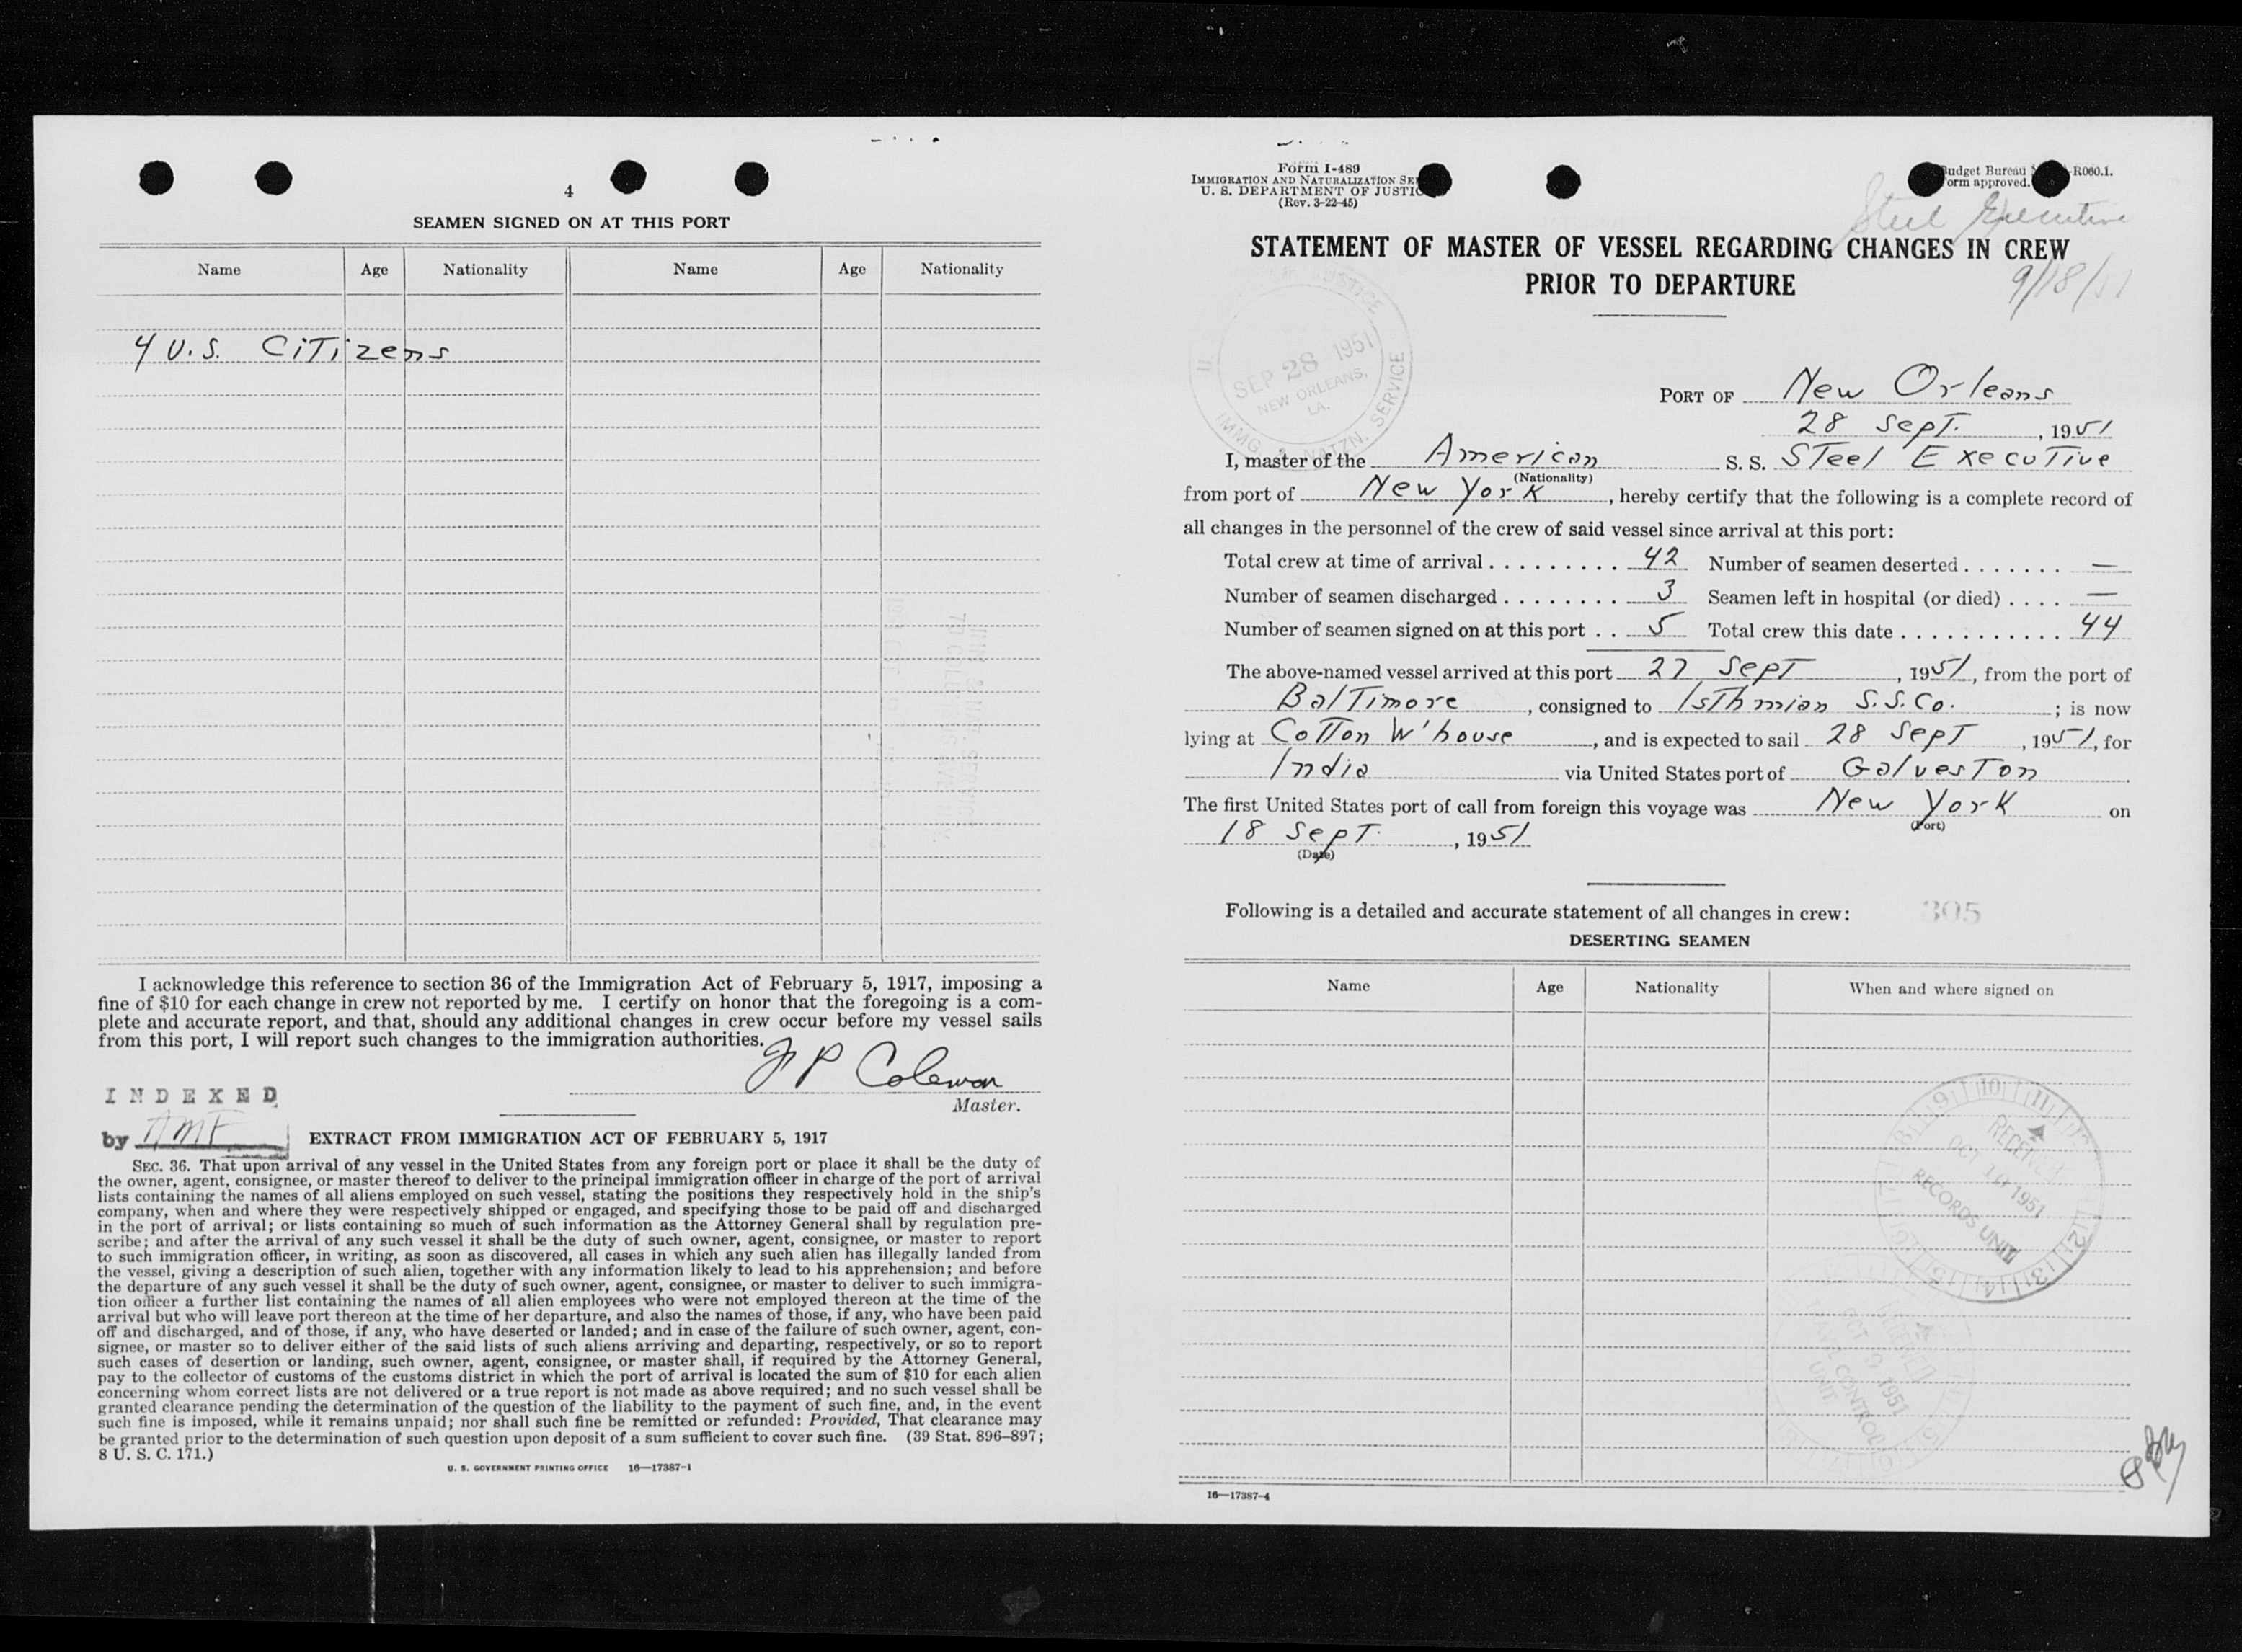 4
SEAMEN SIGNED ON AT THIS PORT
Name Age Nationality Name Age Nationality
4 U.S. CiTizens
I acknowledge this reference to section 36 of the Immigration Act of February 5, 1917, imposing a
fine of $10 for each change in crew not reported by me. I certify on honor that the foregoing is a com-
plete and accurate report, and that, should any additional changes in crew occur before my vessel sails
from this port, I will report such changes to the immigration authorities.
J P Coleman
Master.
INDEXED
by AMF
EXTRACT FROM IMMIGRATION ACT OF FEBRUARY 5, 1917
SEC. 36. That upon arrival of any vessel in the United States from any foreign port or place it shall be the duty of
the owner, agent, consignee, or master thereof to deliver to the principal immigration officer in charge of the port of arrival
lists containing the names of all aliens employed on such vessel, stating the positions they respectively hold in the ship's
company, when and where they were respectively shipped or engaged, and specifying those to be paid off and discharged
in the port of arrival; or lists containing so much of such information as the Attorney General shall by regulation pre-
scribe; and after the arrival of any such vessel it shall be the duty of such owner, agent, consignee, or master to report
to such immigration officer, in writing, as soon as discovered, all cases in which any such alien has illegally landed from
the vessel, giving a description of such alien, together with any information likely to lead to his apprehension; and before
the departure of any such vessel it shall be the duty of such owner, agent, consignee, or master to deliver to such immigra-
tion officer a further list containing the names of all alien employees who were not employed thereon at the time of the
arrival but who will leave port thereon at the time of her departure, and also the names of those, if any, who have been paid
off and discharged, and of those, if any, who have deserted or landed; and in case of the failure of such owner, agent, con-
signee, or master so to deliver either of the said lists of such aliens arriving and departing, respectively, or so to report
such cases of desertion or landing, such owner, agent, consignee, or master shall, if required by the Attorney General,
pay to the collector of customs of the customs district in which the port of arrival is located the sum of $10 for each alien
concerning whom correct lists are not delivered or a true report is not made as above required; and no such vessel shall be
granted clearance pending the determination of the question of the liability to the payment of such fine, and, in the event
such fine is imposed, while it remains unpaid; nor shall such fine be remitted or refunded: Provided, That clearance may
be granted prior to the determination of such question upon deposit of a sum sufficient to cover such fine. (39 Stat. 896–897;
8 U. S. C. 171.)
U. S. GOVERNMENT PRINTING OFFICE 16—17387-1
Form I-489
IMMIGRATION AND NATURALIZATION SE
U. S. DEPARTMENT OF JUSTIC
(Rev. 3-22-45)
udget Bureau R060.1.
orm approved.
Steel Executive
STATEMENT OF MASTER OF VESSEL REGARDING CHANGES IN CREW
PRIOR TO DEPARTURE
9/18/51
SEP 28 1951
NEW ORLEANS,
LA.
IMMG. & NATZN. SERVICE
PORT OF New Orleans
28 Sept. , 1951
I, master of the American S. S. STeel ExecuTive
(Nationality)
from port of New York , hereby certify that the following is a complete record of
all changes in the personnel of the crew of said vessel since arrival at this port:
Total crew at time of arrival . . . . . . . . . 42 Number of seamen deserted . . . . . . . —
Number of seamen discharged . . . . . . . . 3 Seamen left in hospital (or died) . . . . —
Number of seamen signed on at this port . . 5 Total crew this date . . . . . . . . . . . 44
The above-named vessel arrived at this port 27 SepT , 1951, from the port of
BalTimore , consigned to IsThmian S.S.Co. ; is now
lying at CoTTon W'house , and is expected to sail 28 SepT , 1951, for
India via United States port of GalvesTon
The first United States port of call from foreign this voyage was New York on
(Port)
18 SepT. , 1951
(Date)
Following is a detailed and accurate statement of all changes in crew:
305
DESERTING SEAMEN
Name Age Nationality When and where signed on
RECEIVED
1951
RECORDS UNIT
OCT 1951
CONTROL
UNIT
16—17387-4